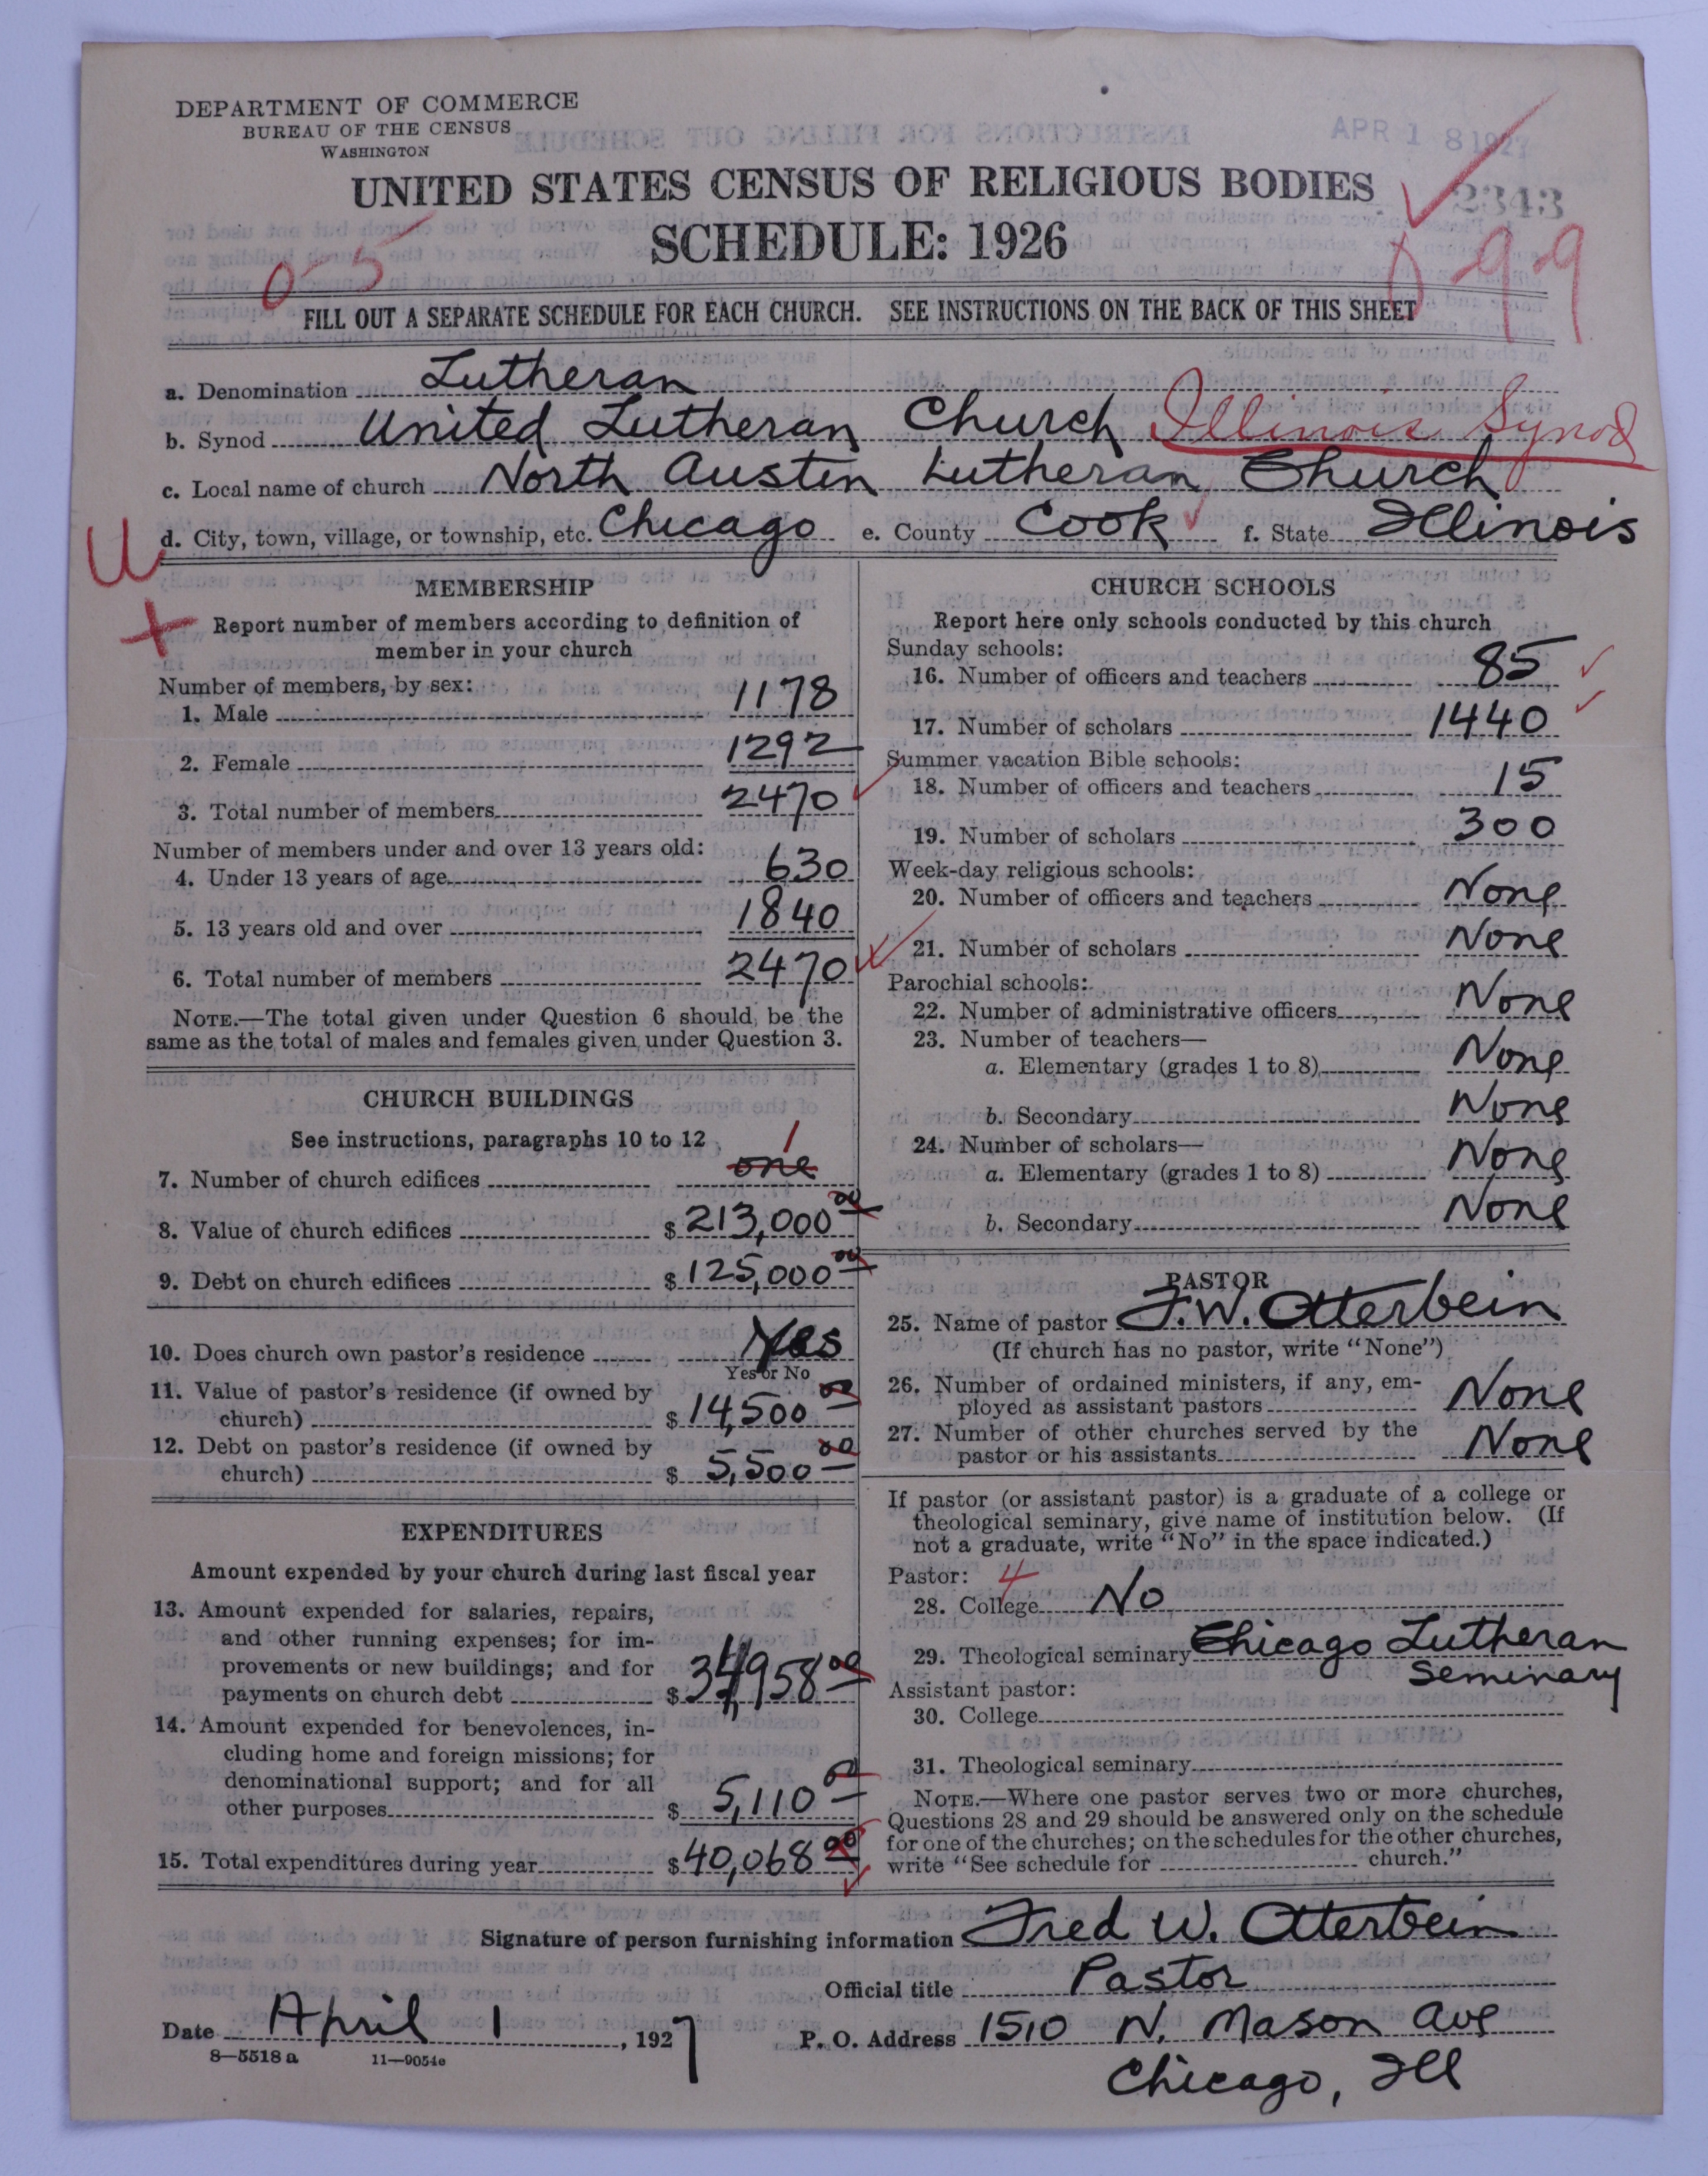 DEPARTMENT OF COMMERCE
BUREAU OF THE CENSUS
WASHINGTON
APR 18 1927
UNITED STATES CENSUS OF RELIGIOUS BODIES
2343
SCHEDULE: 1926
0-5
0-99
FILL OUT A SEPARATE SCHEDULE FOR EACH CHURCH. SEE INSTRUCTIONS ON THE BACK OF THIS SHEET
a. Denomination Lutheran
b. Synod United Lutheran Church Illinois Synod
c. Local name of church North Austin Lutheran Church
d. City, town, village, or township, etc. Chicago e. County Cook f. State Illinois
MEMBERSHIP
Report number of members according to definition of
member in your church
Number of members, by sex:
1. Male 1178
2. Female 1292
3. Total number of members 2470
Number of members under and over 13 years old:
4. Under 13 years of age 630
5. 13 years old and over 1840
6. Total number of members 2470
NOTE.—The total given under Question 6 should be the
same as the total of males and females given under Question 3.
CHURCH BUILDINGS
See instructions, paragraphs 10 to 12
1
7. Number of church edifices one
8. Value of church edifices $213,000 00
9. Debt on church edifices $125,000 00
10. Does church own pastor's residence Yes
Yes or No
11. Value of pastor's residence (if owned by
church) $14,500 00
12. Debt on pastor's residence (if owned by
church) $5,500 00
EXPENDITURES
Amount expended by your church during last fiscal year
13. Amount expended for salaries, repairs,
and other running expenses; for im-
provements or new buildings; and for
payments on church debt $34,958 00
14. Amount expended for benevolences, in-
cluding home and foreign missions; for
denominational support; and for all
other purposes $5,110 00
15. Total expenditures during year $40,068 00
CHURCH SCHOOLS
Report here only schools conducted by this church
Sunday schools:
16. Number of officers and teachers 85
17. Number of scholars 1440
Summer vacation Bible schools:
18. Number of officers and teachers 15
19. Number of scholars 300
Week-day religious schools:
20. Number of officers and teachers None
21. Number of scholars None
Parochial schools:
22. Number of administrative officers None
23. Number of teachers—
a. Elementary (grades 1 to 8) None
b. Secondary None
24. Number of scholars—
a. Elementary (grades 1 to 8) None
b. Secondary None
PASTOR
25. Name of pastor F.W. Otterbein
(If church has no pastor, write "None")
26. Number of ordained ministers, if any, em-
ployed as assistant pastors None
27. Number of other churches served by the
pastor or his assistants None
If pastor (or assistant pastor) is a graduate of a college or
theological seminary, give name of institution below. (If
not a graduate, write "No" in the space indicated.)
Pastor: 4
28. College No
29. Theological seminary Chicago Lutheran
Seminary
Assistant pastor:
30. College
31. Theological seminary
NOTE.—Where one pastor serves two or more churches,
Questions 28 and 29 should be answered only on the schedule
for one of the churches; on the schedules for the other churches,
write "See schedule for church."
Signature of person furnishing information Fred W. Otterbein
Official title Pastor
Date April 1, 1927 P. O. Address 1510 N. Mason Ave
8—5518 a 11—9054c
Chicago, Ill